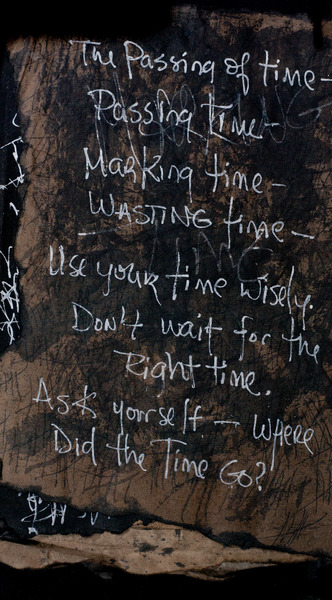 The Passing of time-
Passing time-
Marking time-
- WASTING time -
Use your time wisely.
Don't wait for the
Right time.
Ask yourself - where
Did the Time Go?